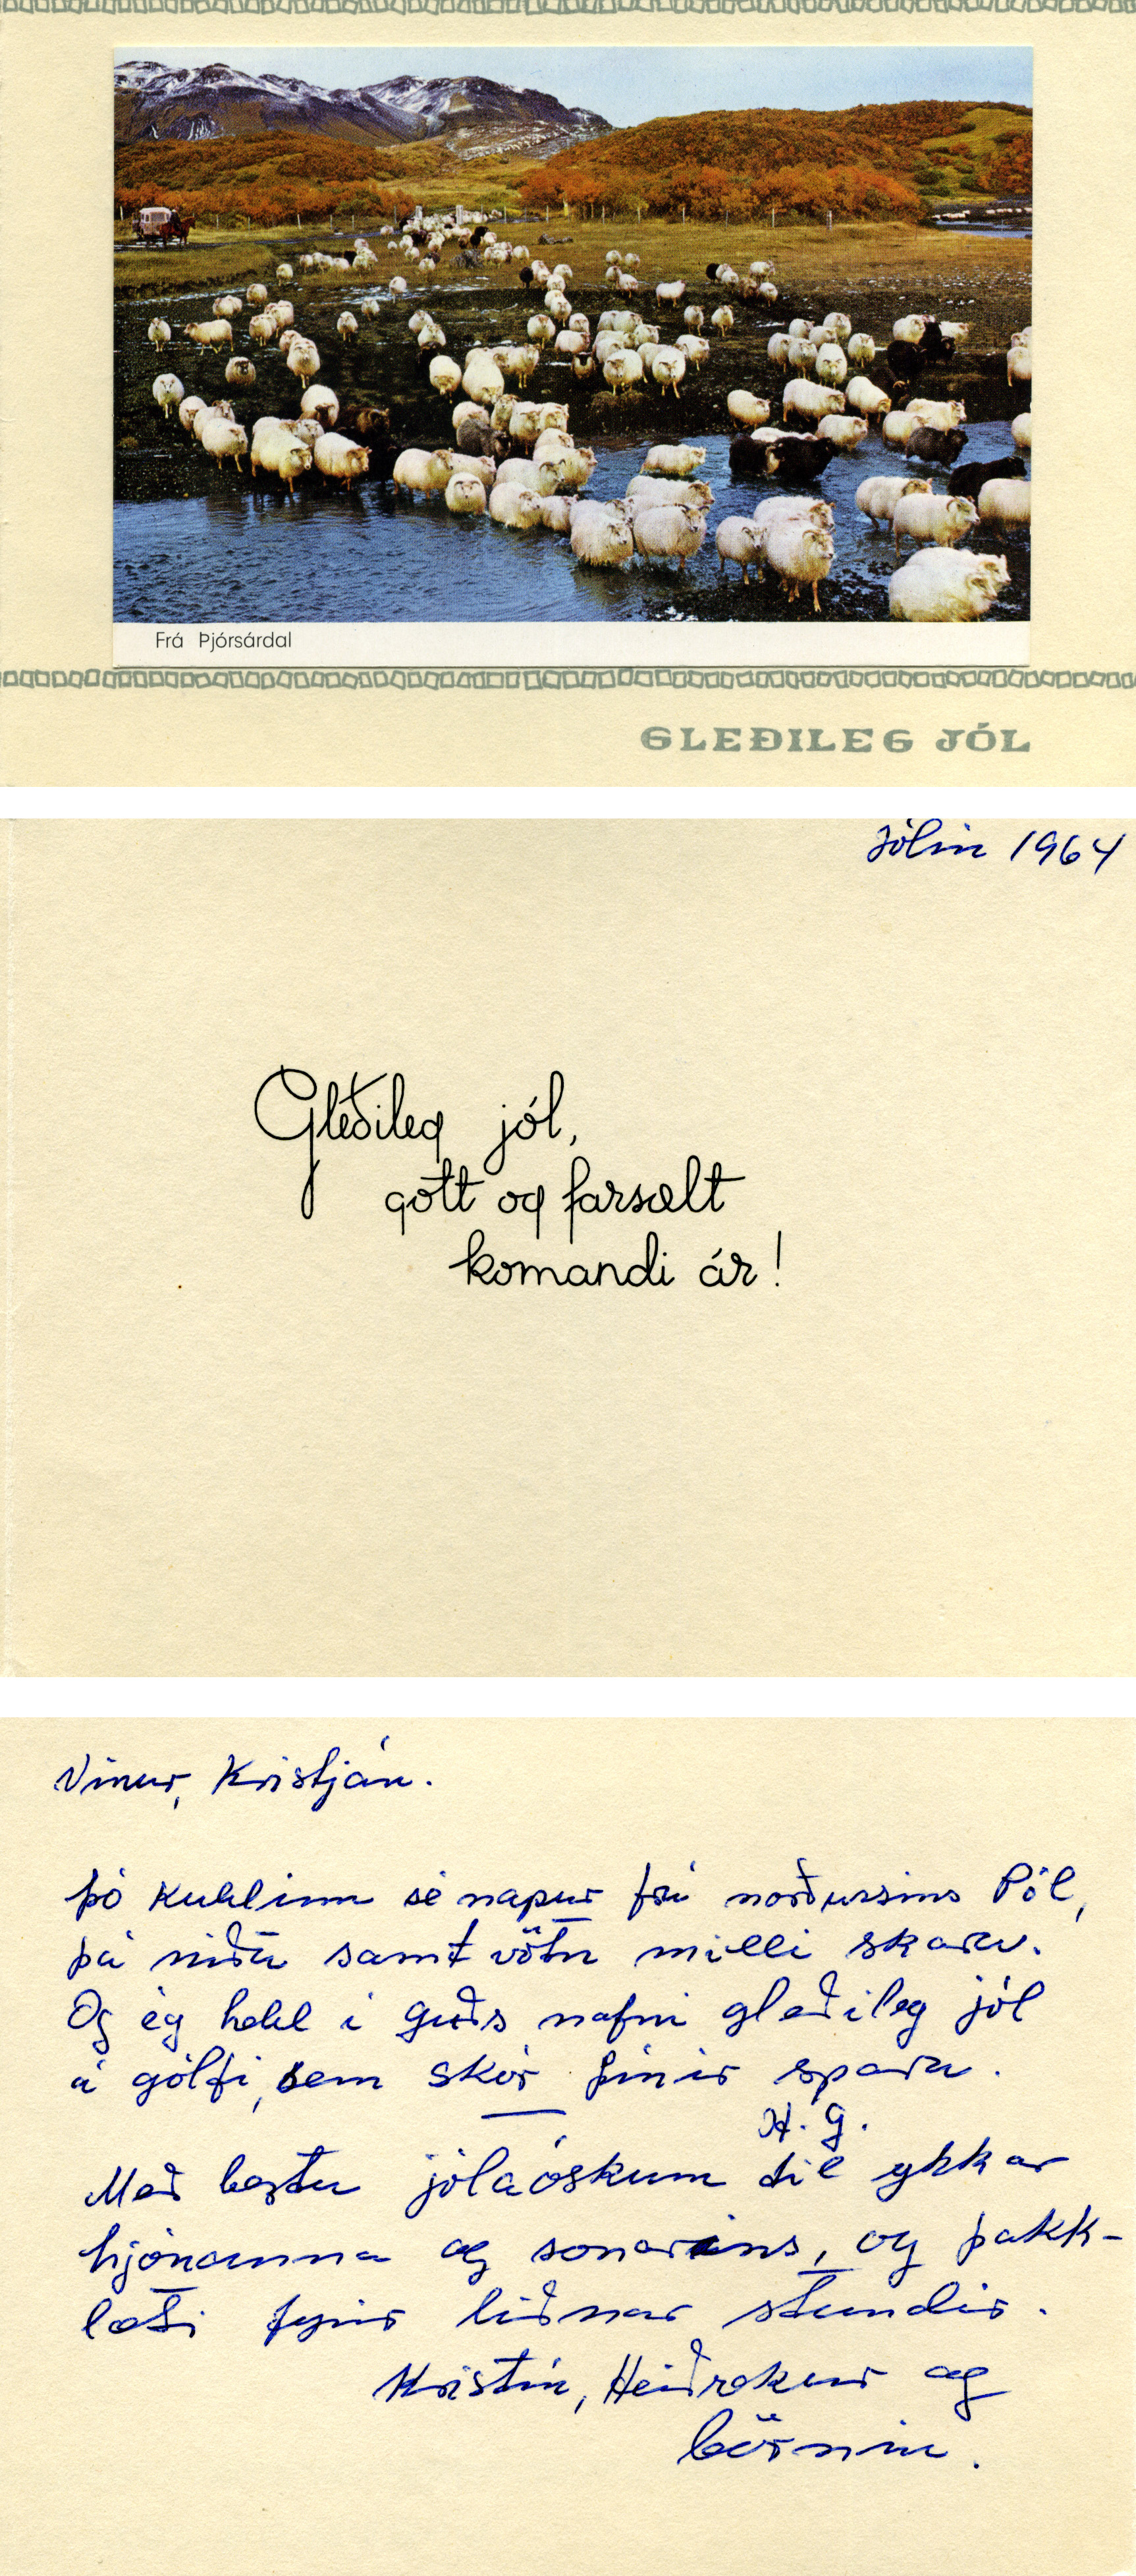 Frá Þjórsárdal
GLEÐILEG JÓL
Jólin 1964
Gleðileg jól,
gott og farsælt
komandi ár!
Vinur, Kristján.
Þó kuldinn sé napur frá norðursins Pól,
þá niða samt vötn milli skara.
Og ég held í Guðs nafni gleðileg jól
á gólfi, sem skór þínir spara.
H. G.
Með bestu jólaóskum til ykkar
hjónanna og sonarins, og þakk-
læti fyrir liðnar stundir.
Kristín, Heiðrekur og
börnin.